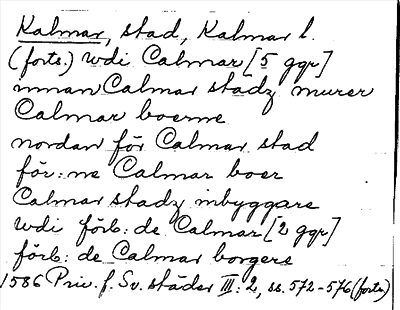 Kalmar, stad, Kalmar l.
(forts.) wdi Calmar [5 ggr]
innan Calmar stadz murer
Calmar boerne
nordan för Calmar stad
för:ne Calmar boer
Calmar stadz inbyggare
wdi förb:de Calmar [2 ggr]
förb:de Calmar borgere
1586 Priv. f. Sv. städer III:2, ss. 572-576 (forts.)